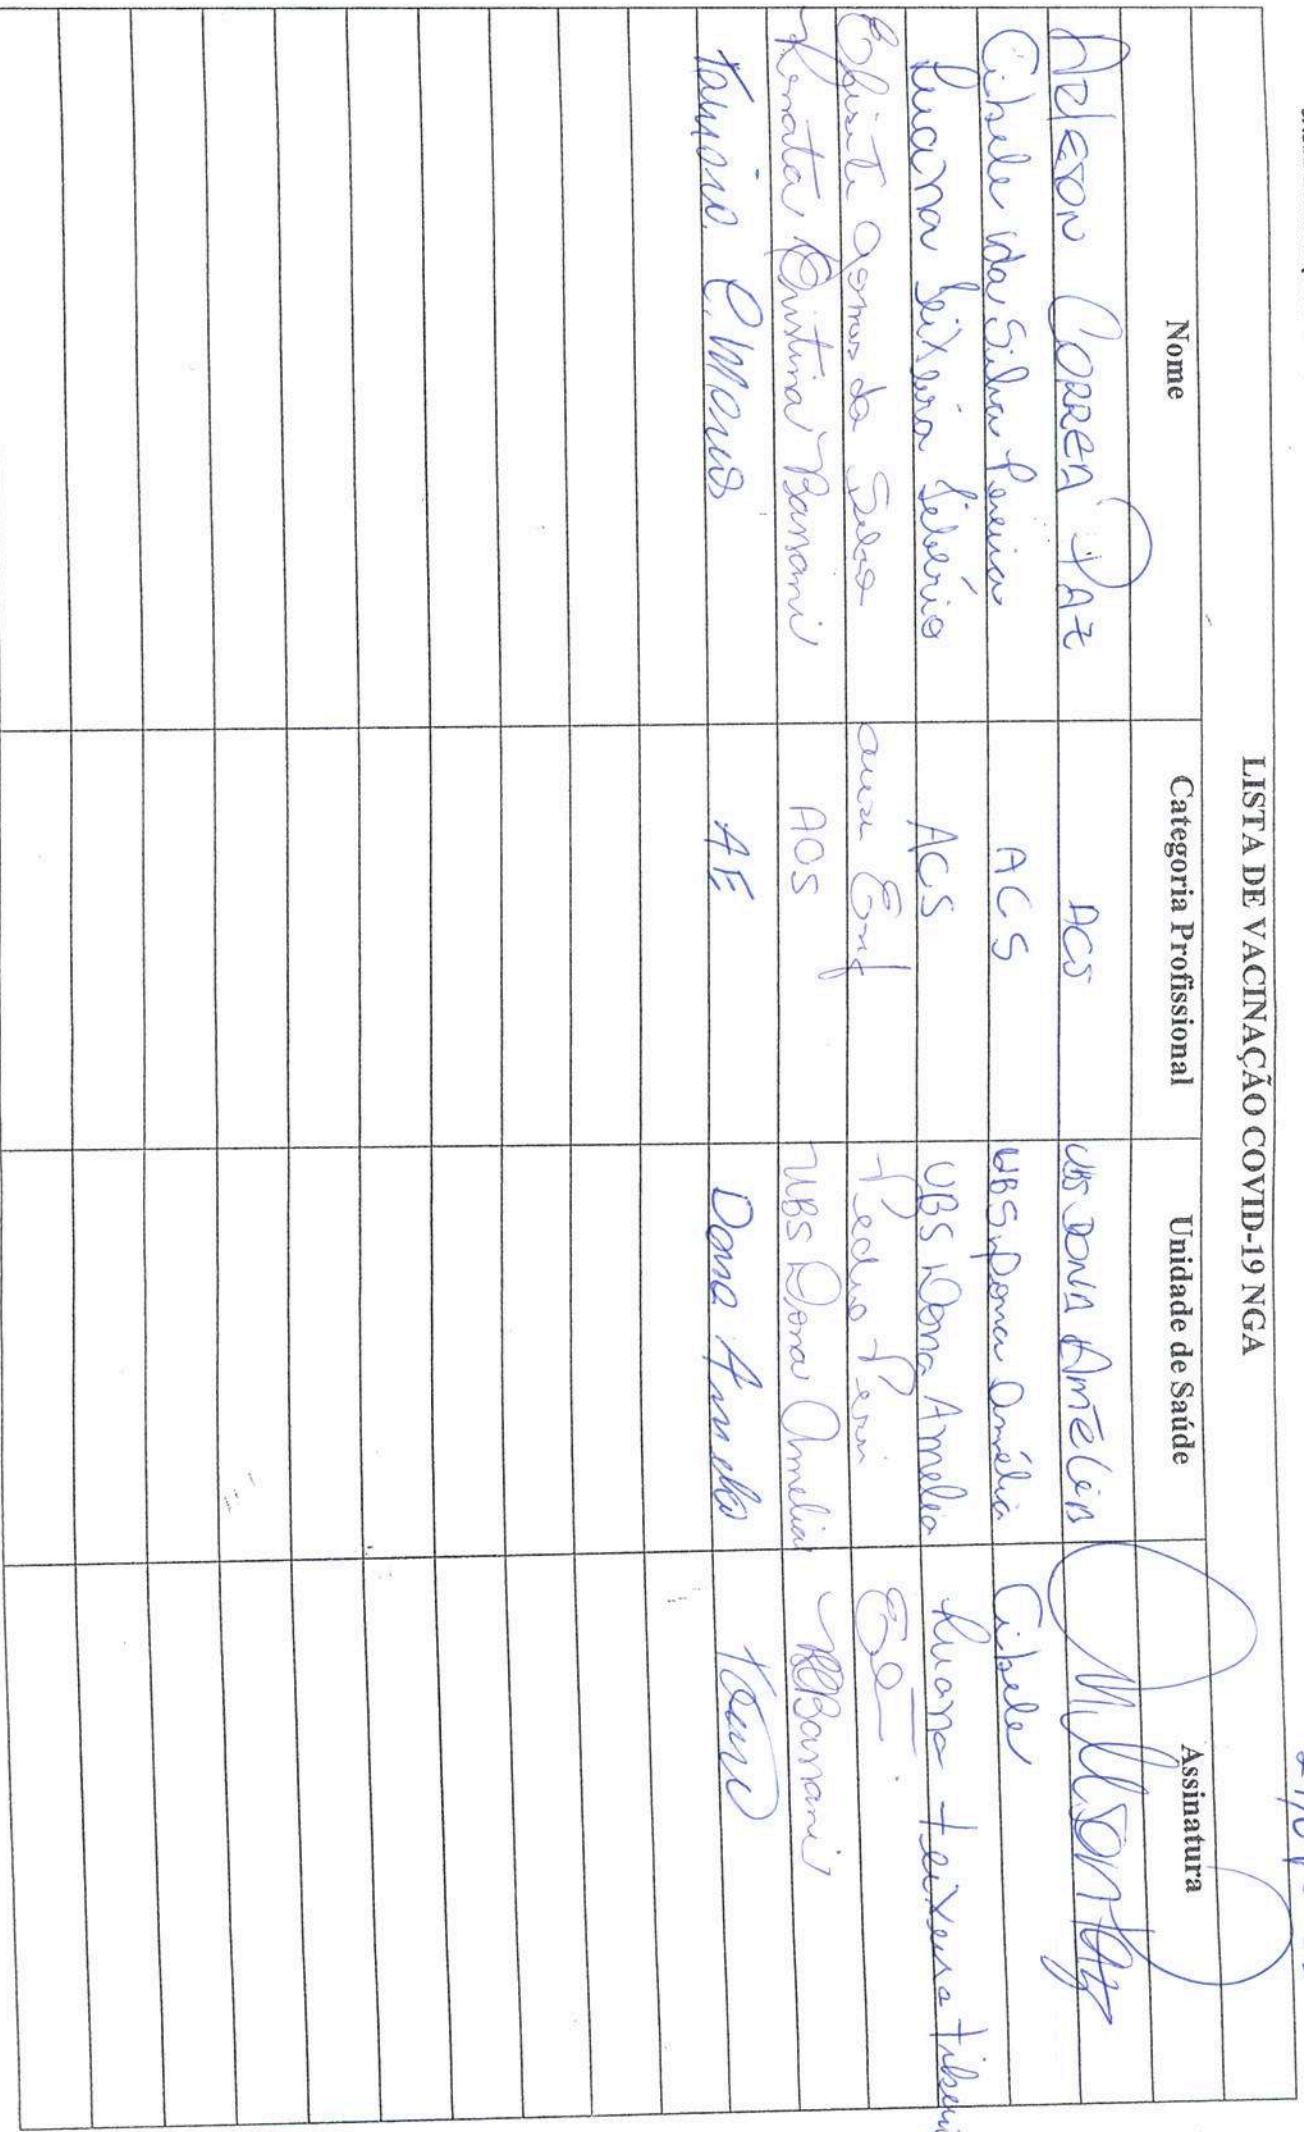 LISTA DE VACINAÇÃO COVID-19 NGA
Nome Categoria Profissional Unidade de Saúde Assinatura
CORREA PAZ ACS UBS DONA AMÉLIA
Cibele da Silva Pereira ACS UBS Dona Amélia Cibele
Luana Teixeira Tibério ACS UBS Dona Amelia Luana Teixeira
Gomes da Silva Enf Pedro Perri
Renata Cristina Bansani AOS UBS Dona Amelia RCBansani
C. AE Dona Amelia